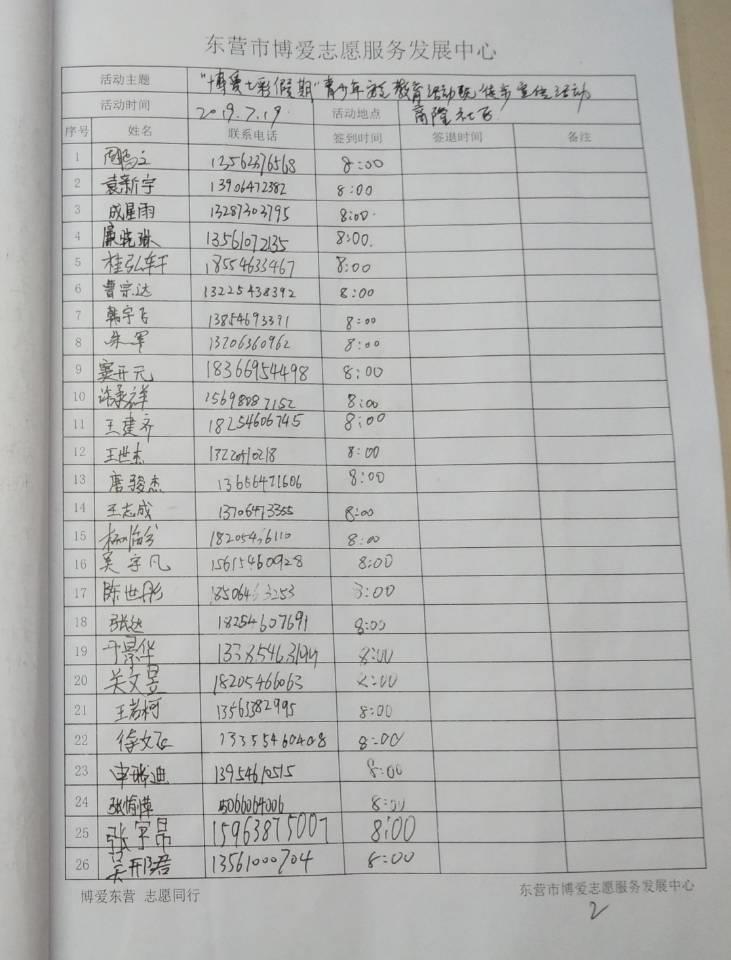 东营市博爱志愿服务发展中心
活动主题 "博爱七彩假期"青少年 教育活动 徒步宣传活动
活动时间 2019.7.19. 活动地点 商隆社区
序号 姓名 联系电话 签到时间 签退时间 备注
1 13562376568 8:00
2 袁新宇 13906472382 8:00
3 成星雨 13287303795 8:00
4 廉晓琳 13561072135 8:00
5 桂弘轩 18554633467 8:00
6 曹宗达 13225438392 8:00
7 韩宇飞 13854693391 8:00
8 朱军 13706360962 8:00
9 窦开元 18366954498 8:00
10 祥 15698087152 8:00
11 王建齐 18254606745 8:00
12 王世杰 8:00
13 唐骏杰 13656471606 8:00
14 王志成 13706473355 8:00
15 8:00
16 吴宇凡 15615460928 8:00
17 陈世彤 8:00
18 张达 18254607691 8:00
19 于景华 8:00
20 关文昱 18205466063 8:00
21 王若柯 13563382995 8:00
22 徐文 13355460408 8:00
23 申 迪 13954610515 8:00
24 张 8:00
25 张宇昂 15963875007 8:00
26 吴 君 13561000704 8:00
博爱东营 志愿同行 东营市博爱志愿服务发展中心
2